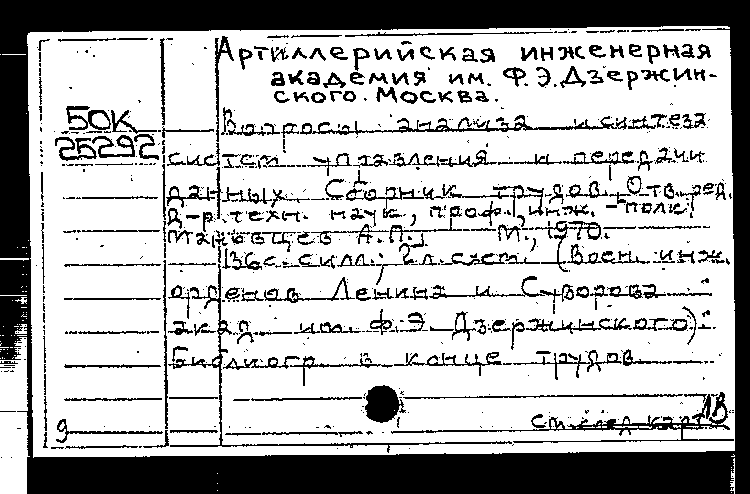 Артиллерийская инженерная
академия им. Ф.Э.Дзержин-
ского. Москва.
50К
25292
Вопросы анализа и синтеза
систем управления и передачи
данных. Сборник трудов. Отв. ред.
д-р техн. наук, проф., инж.-полк.
А.П., М., 1970.
136с. с илл.; 2л. схем. (Воен. инж.
орденов Ленина и Суворова
акад. им. Ф.Э. Дзержинского).
Библиогр. в конце трудов
1В
См. след. карт.
9